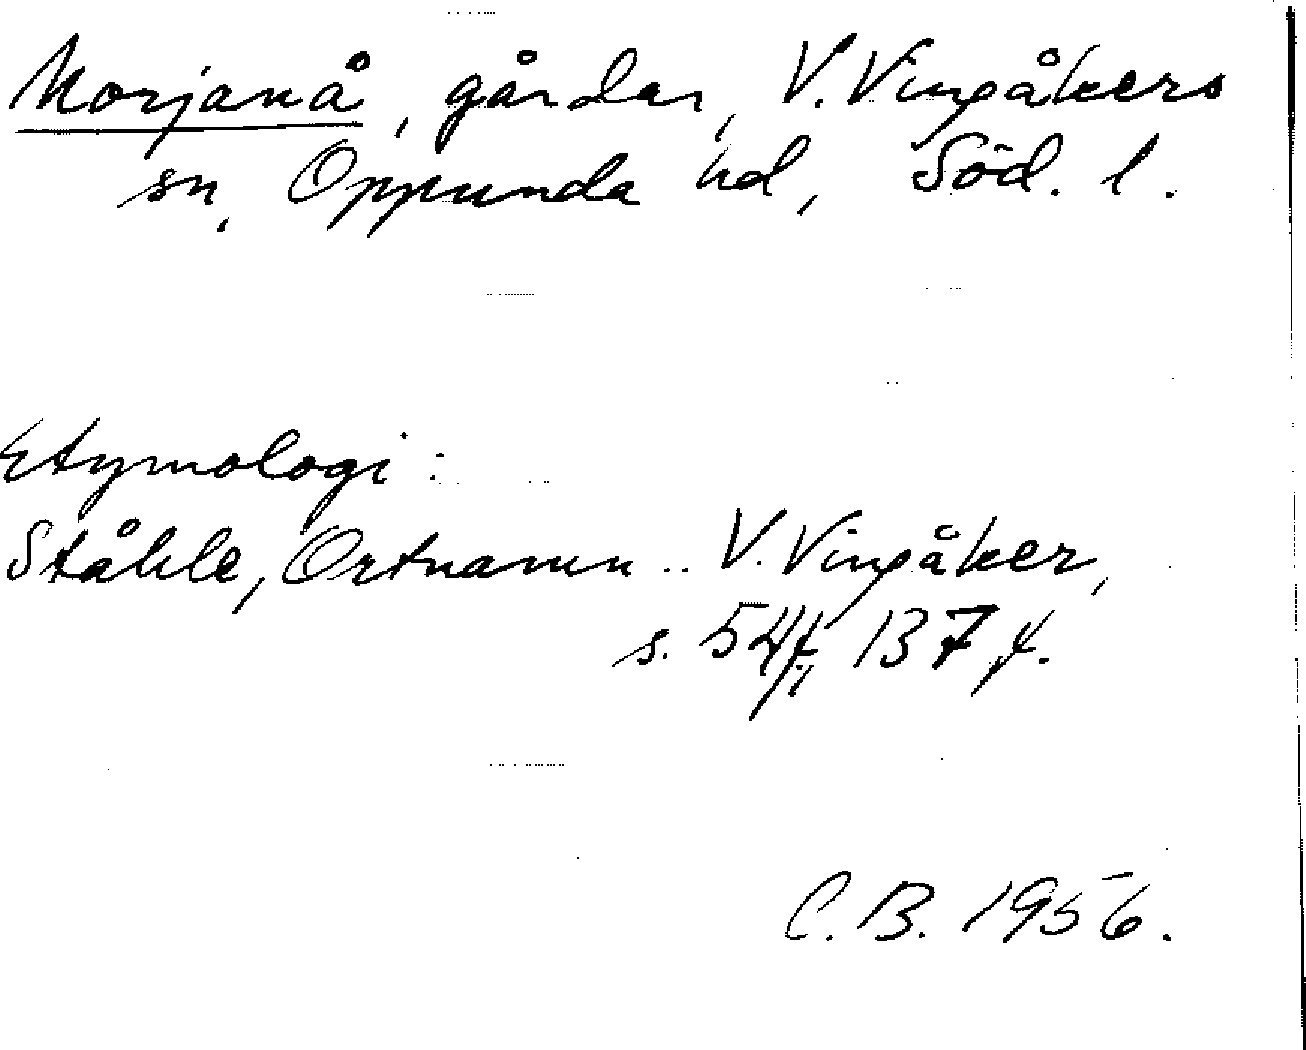 Morjanå, gårdar, V. Vingåkers
sn, Oppunda hd, Söd. l.
Etymologi:
Ståhle, Ortnamn .. V. Vingåker,
s. 54f., 137 f.
C. B. 1956.